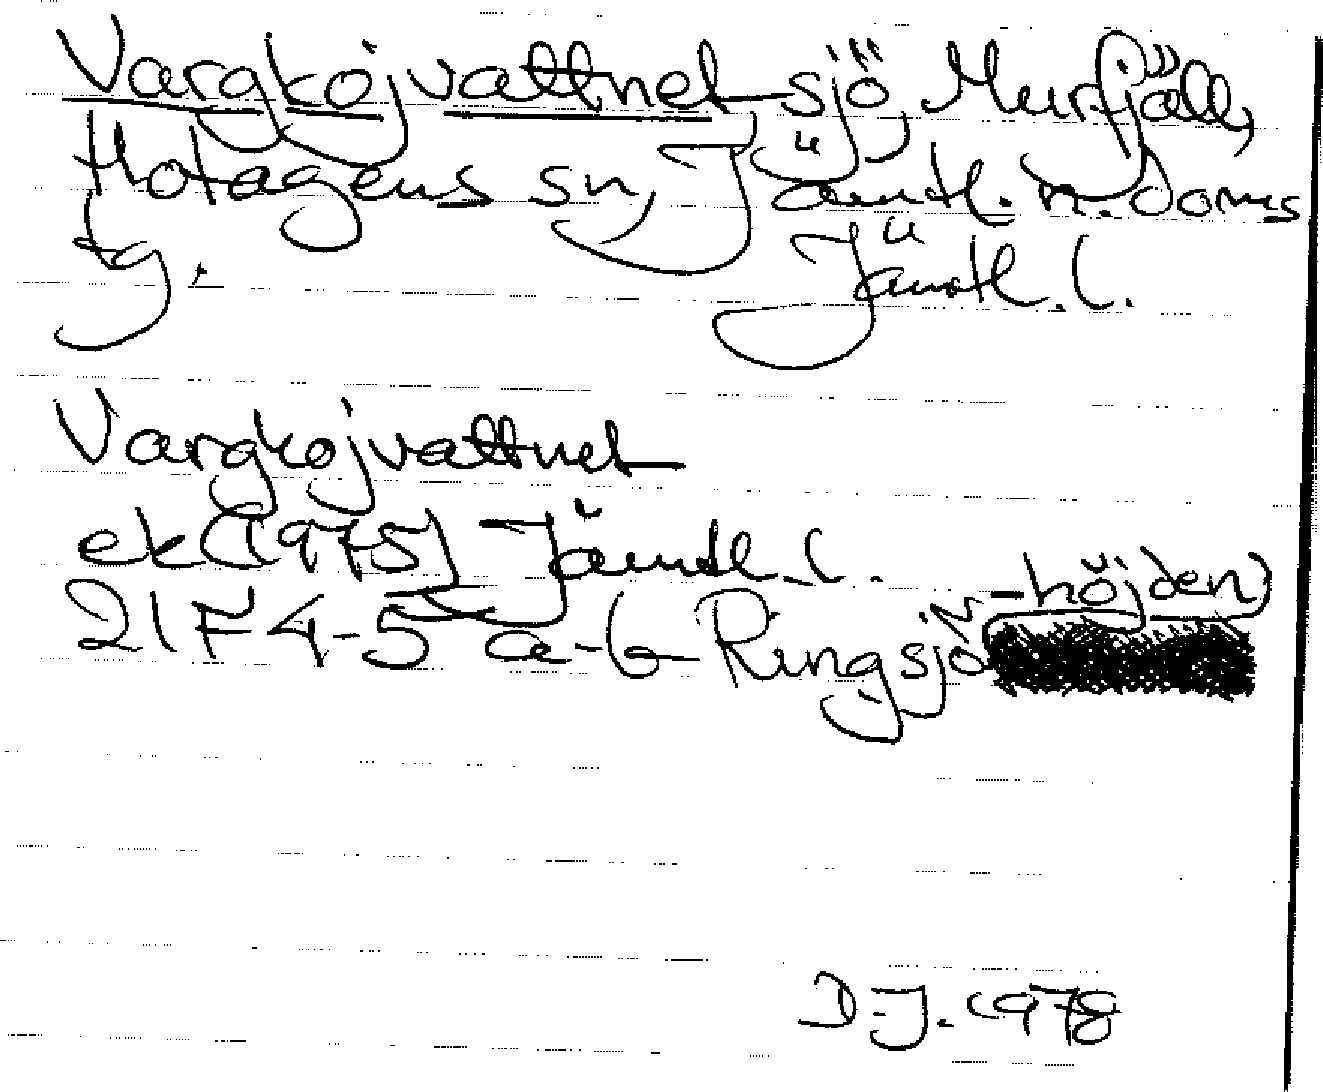 Vargkojvattnet sjö, Murfjäll,
Hotagens sn, Jämtl. n. doms
tg. Jämtl. l.
Vargkojvattnet
ek (1975) Jämtl. l.
21F 4-5 a-b Ringsjö -höjden)
D-J. 1978